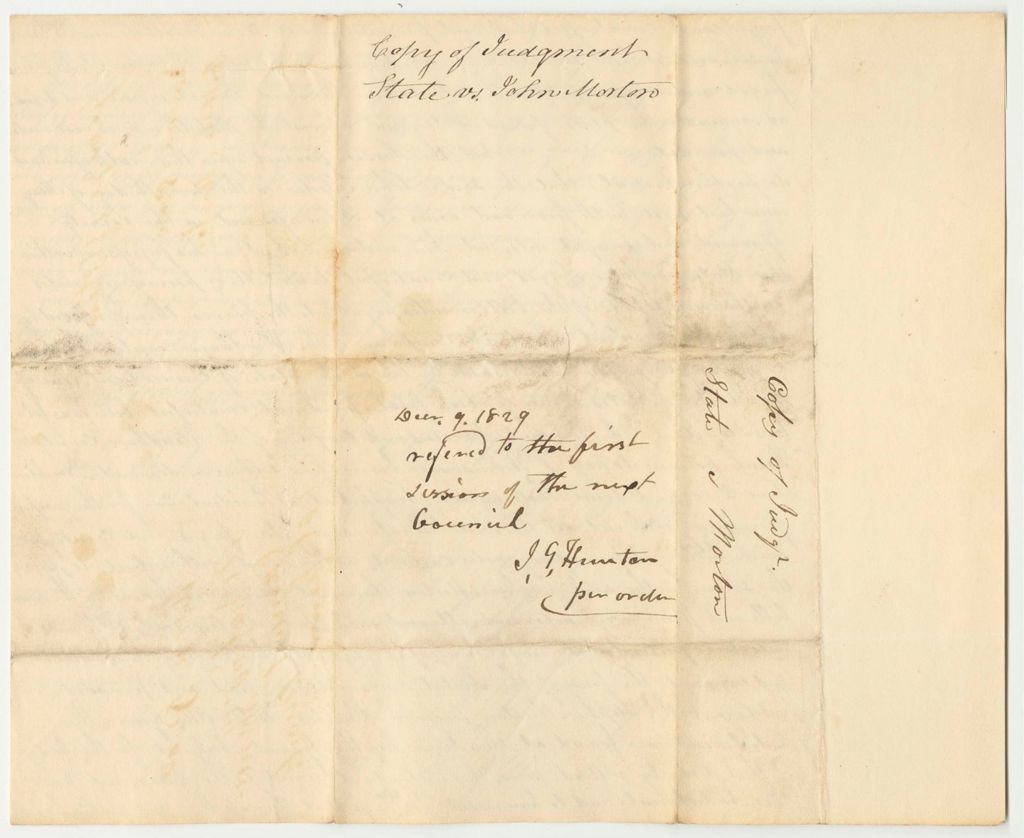 Copy of Judgment
State vs. John Morton
Decr. 9. 1829
refered to the first
session of the next
Council
J G Hunton
per order
Copy of Judgt.
State v Morton